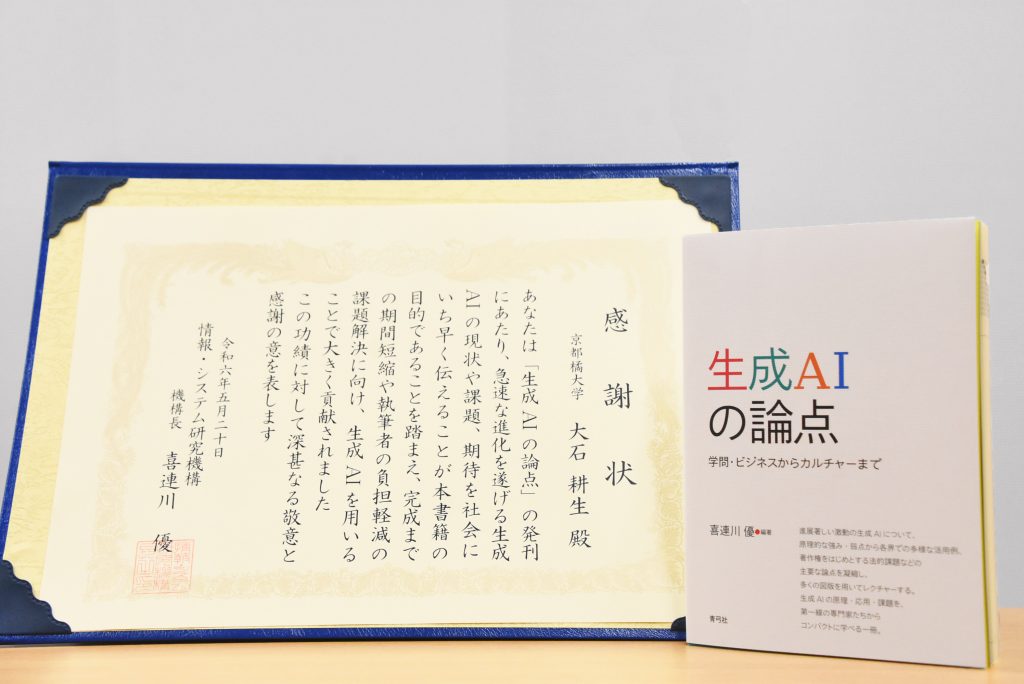 感謝状
京都橘大学 大石 耕生 殿
あなたは「生成AIの論点」の発刊
にあたり、急速な進化を遂げる生成
AIの現状や課題、期待を社会に
いち早く伝えることが本書籍の
目的であることを踏まえ、完成まで
の期間短縮や執筆者の負担軽減の
課題解決に向け、生成AIを用いる
ことで大きく貢献されました
この功績に対して深甚なる敬意と
感謝の意を表します
令和六年五月二十日
情報・システム研究機構
機構長 喜連川 優
生成AI
の論点
学問・ビジネスからカルチャーまで
喜連川 優●編著
進展著しい激動の生成AIについて、
原理的な強み・弱点から各界での多様な活用例、
著作権をはじめとする法的課題などの
主要な論点を凝縮し、
多くの図版を用いてレクチャーする。
生成AIの原理・応用・課題を、
第一線の専門家たちから
コンパクトに学べる一冊。
青弓社